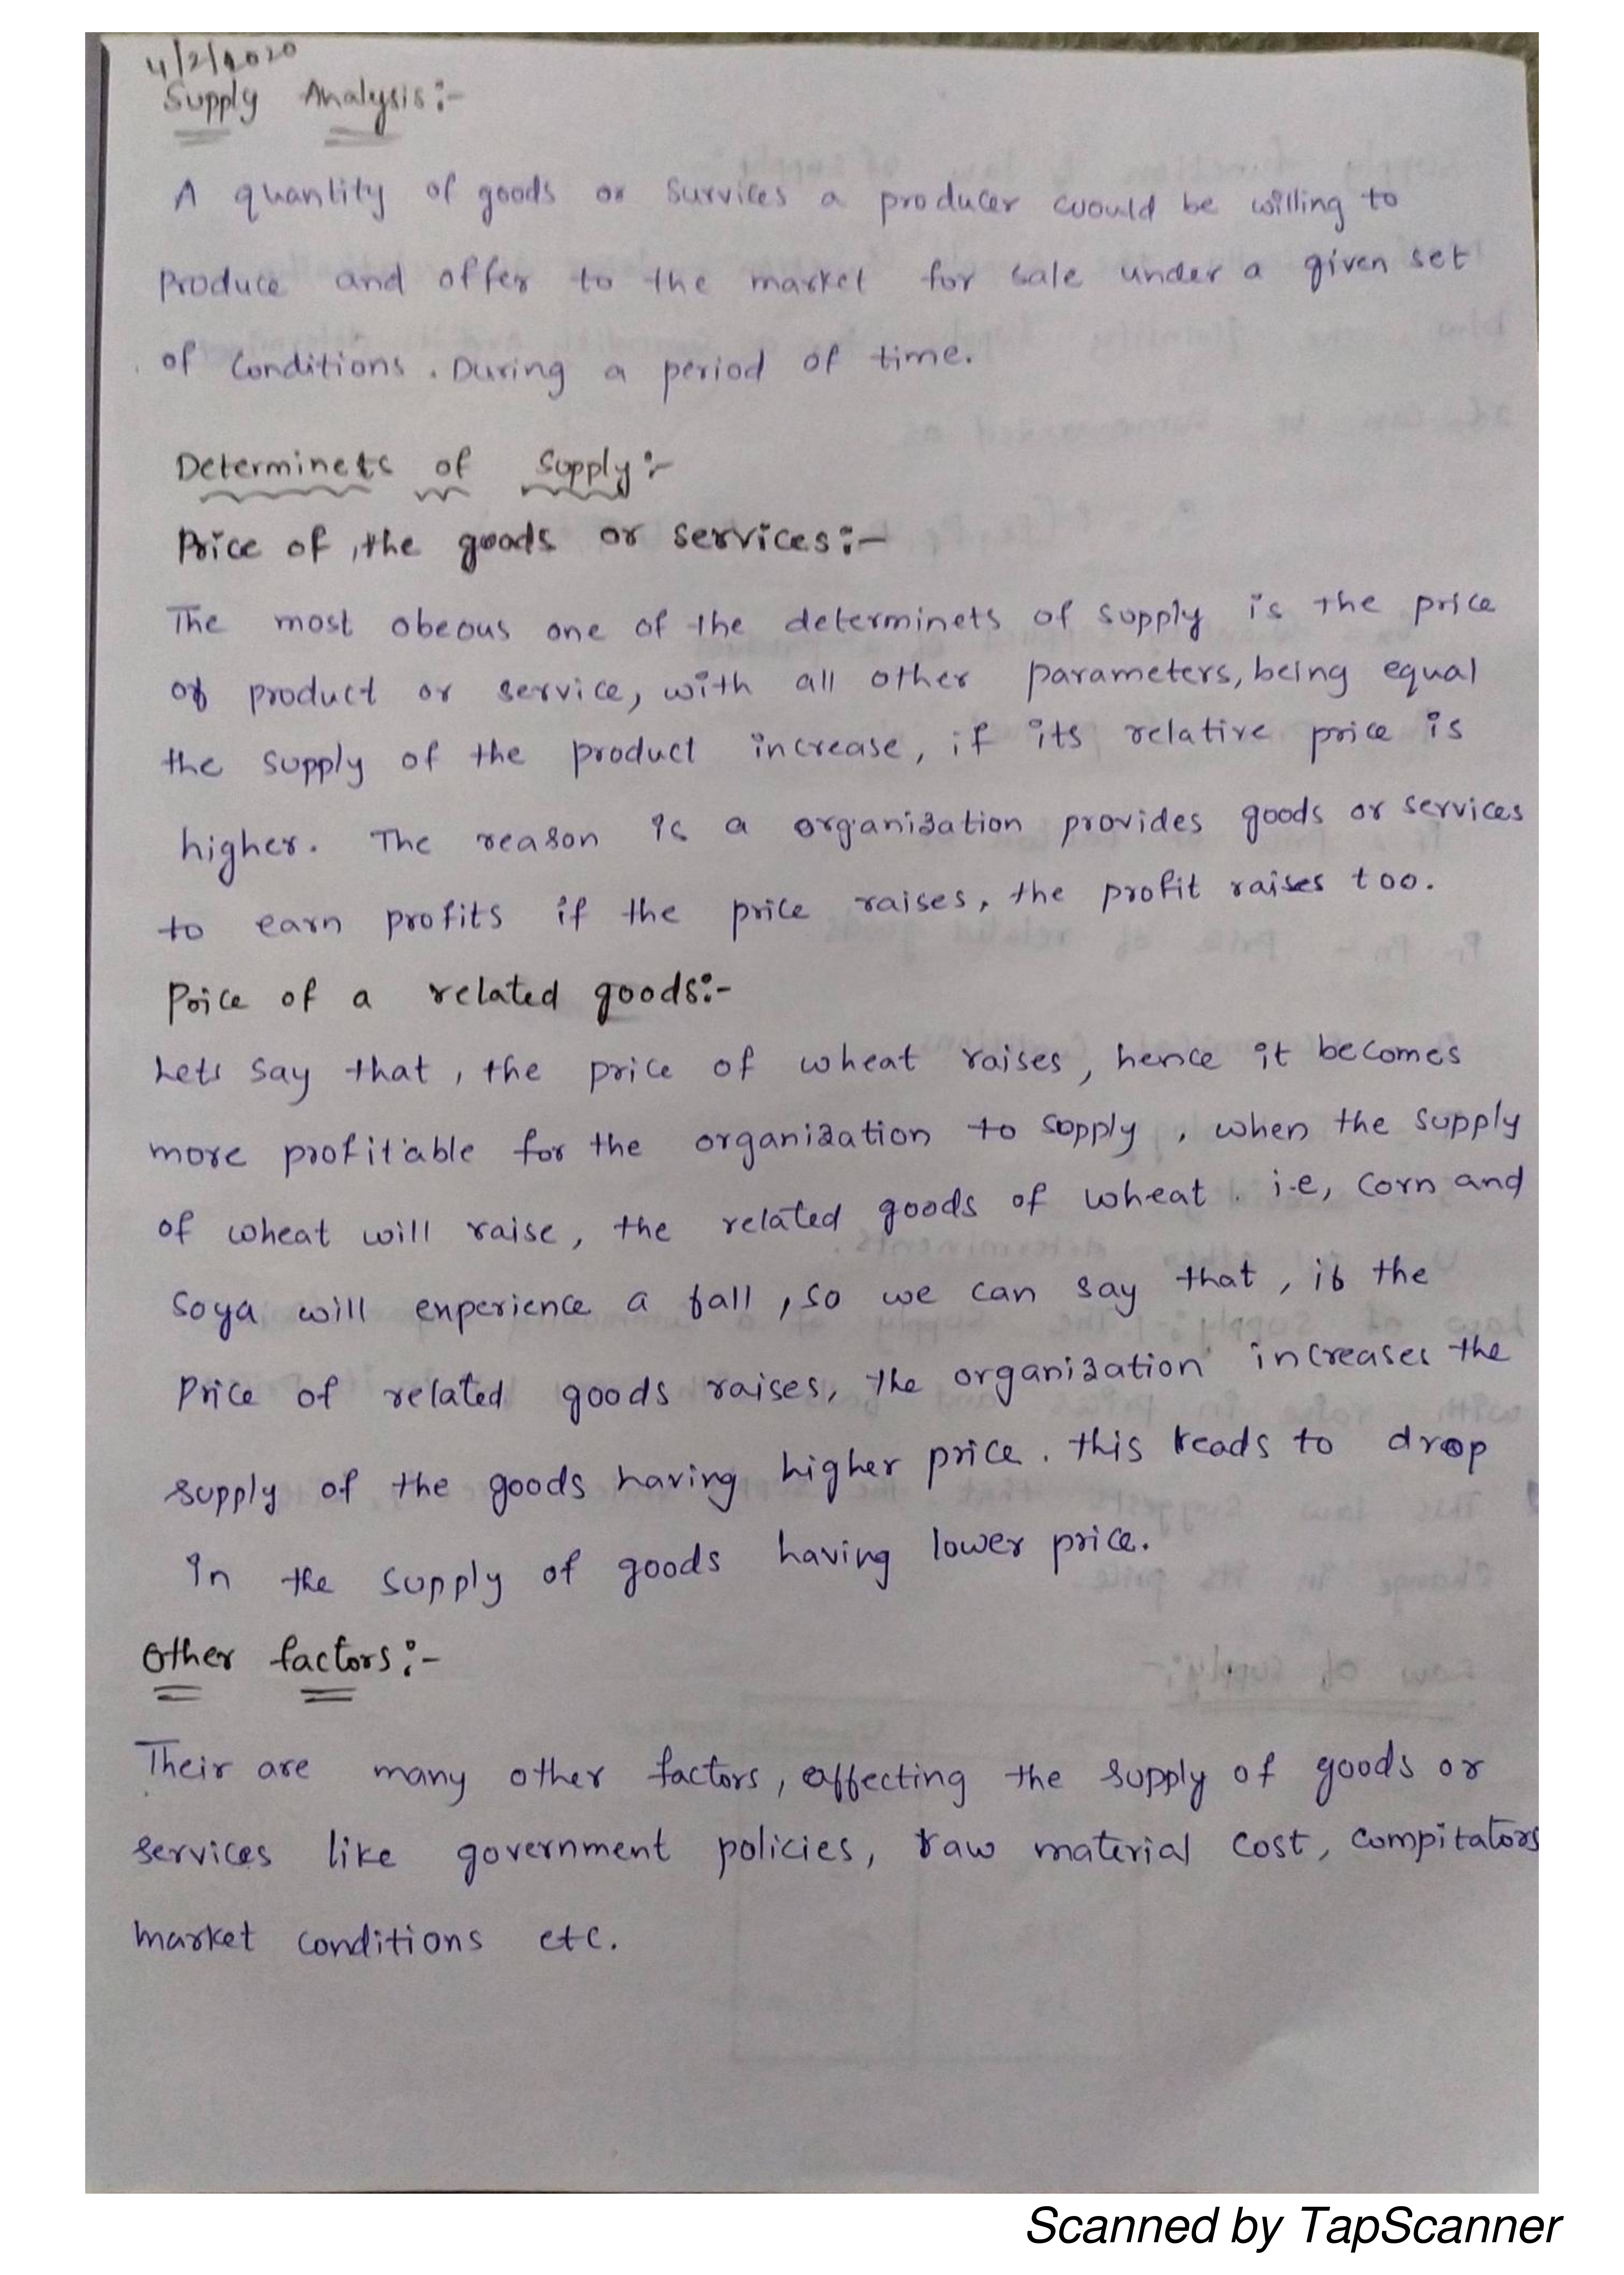 4/2/2020
Supply Analysis:-
A quantity of goods or survices a producer would be willing to
produce and offer to the market for sale under a given set
of conditions. During a period of time.
Determinets of Supply:-
Price of the goods or services:-
The most obeous one of the determinets of supply is the price
of product or service, with all other parameters, being equal
the supply of the product increase, if its relative price is
higher. The reason is a organization provides goods or services
to earn profits if the price raises, the profit raises too.
Price of a related goods:-
Lets say that, the price of wheat raises, hence it becomes
more profitable for the organization to supply, when the supply
of wheat will raise, the related goods of wheat. i.e, corn and
soya will experience a fall, so we can say that, if the
price of related goods raises, the organization increases the
supply of the goods having higher price. this leads to drop
in the supply of goods having lower price.
Other factors:-
Their are many other factors, affecting the supply of goods or
services like government policies, raw material cost, compitators
market conditions etc.
Scanned by TapScanner